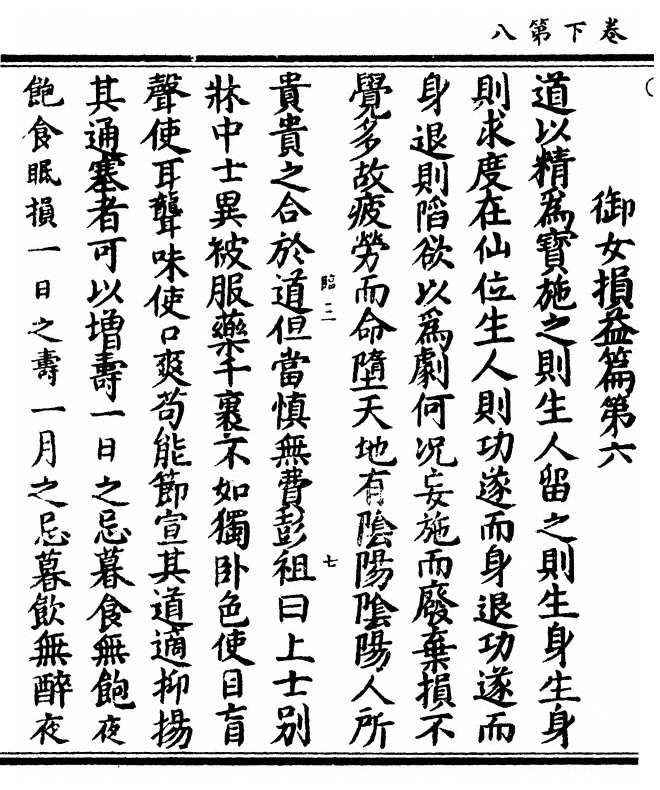 卷下第八
御女損益篇第六
道以精為寶施之則生人留之則生身生身
則求度在仙位生人則功遂而身退功遂而
身退則陷欲以為劇何况妄施而廢棄損不
覺多故疲勞而命墮天地有陰陽陰陽人所
臨三
七
貴貴之合於道但當慎無費彭祖曰上士別
牀中士異被服藥千裹不如獨卧色使目盲
聲使耳聾味使口爽苟能節宣其道適抑揚
其通塞者可以增壽一日之忌暮食無飽夜
飽食眠損一日之壽一月之忌暮飲無醉夜